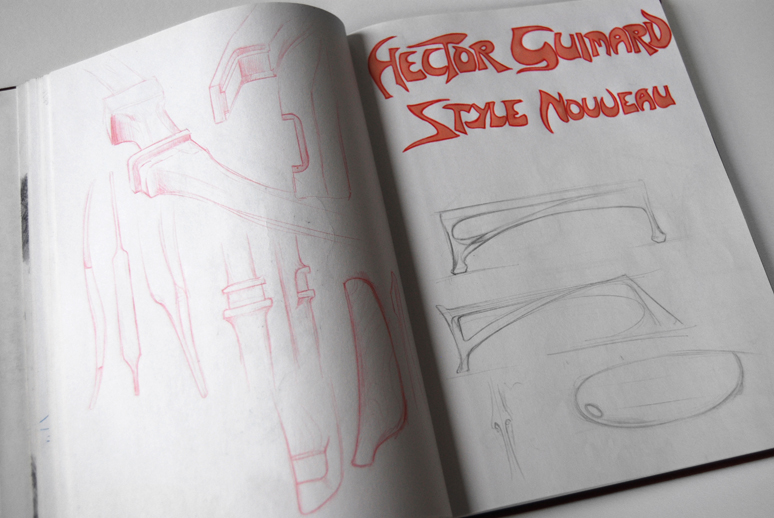 HECTOR GUIMARD
STYLE NOUVEAU